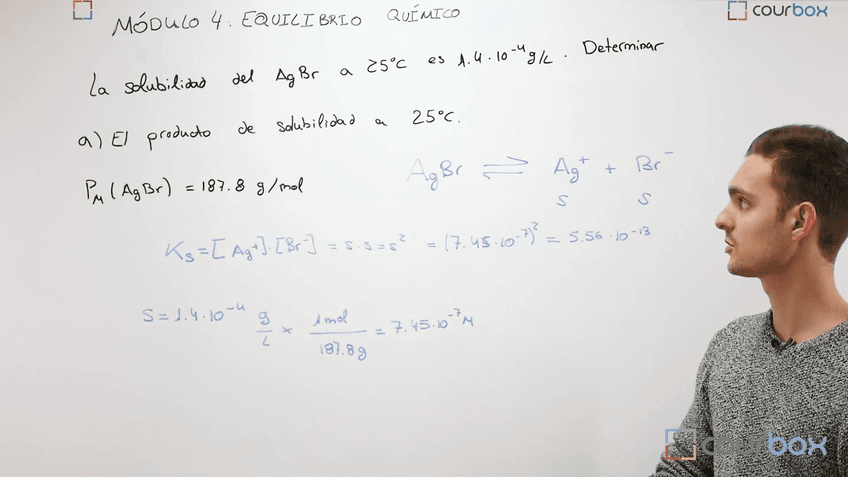 MÓDULO 4. EQUILIBRIO QUÍMICO
courbox
La solubilidad del AgBr a 25°C es 1.4·10⁻⁴ g/L. Determinar
a) El producto de solubilidad a 25°C.
AgBr ⇌ Ag⁺ + Br⁻
S S
P_M (AgBr) = 187.8 g/mol
K_s = [Ag⁺]·[Br⁻] = s·s = s² = (7.45·10⁻⁷)² = 5.56·10⁻¹³
S = 1.4·10⁻⁴ g/L × 1mol/187.8g = 7.45·10⁻⁷ M
courbox